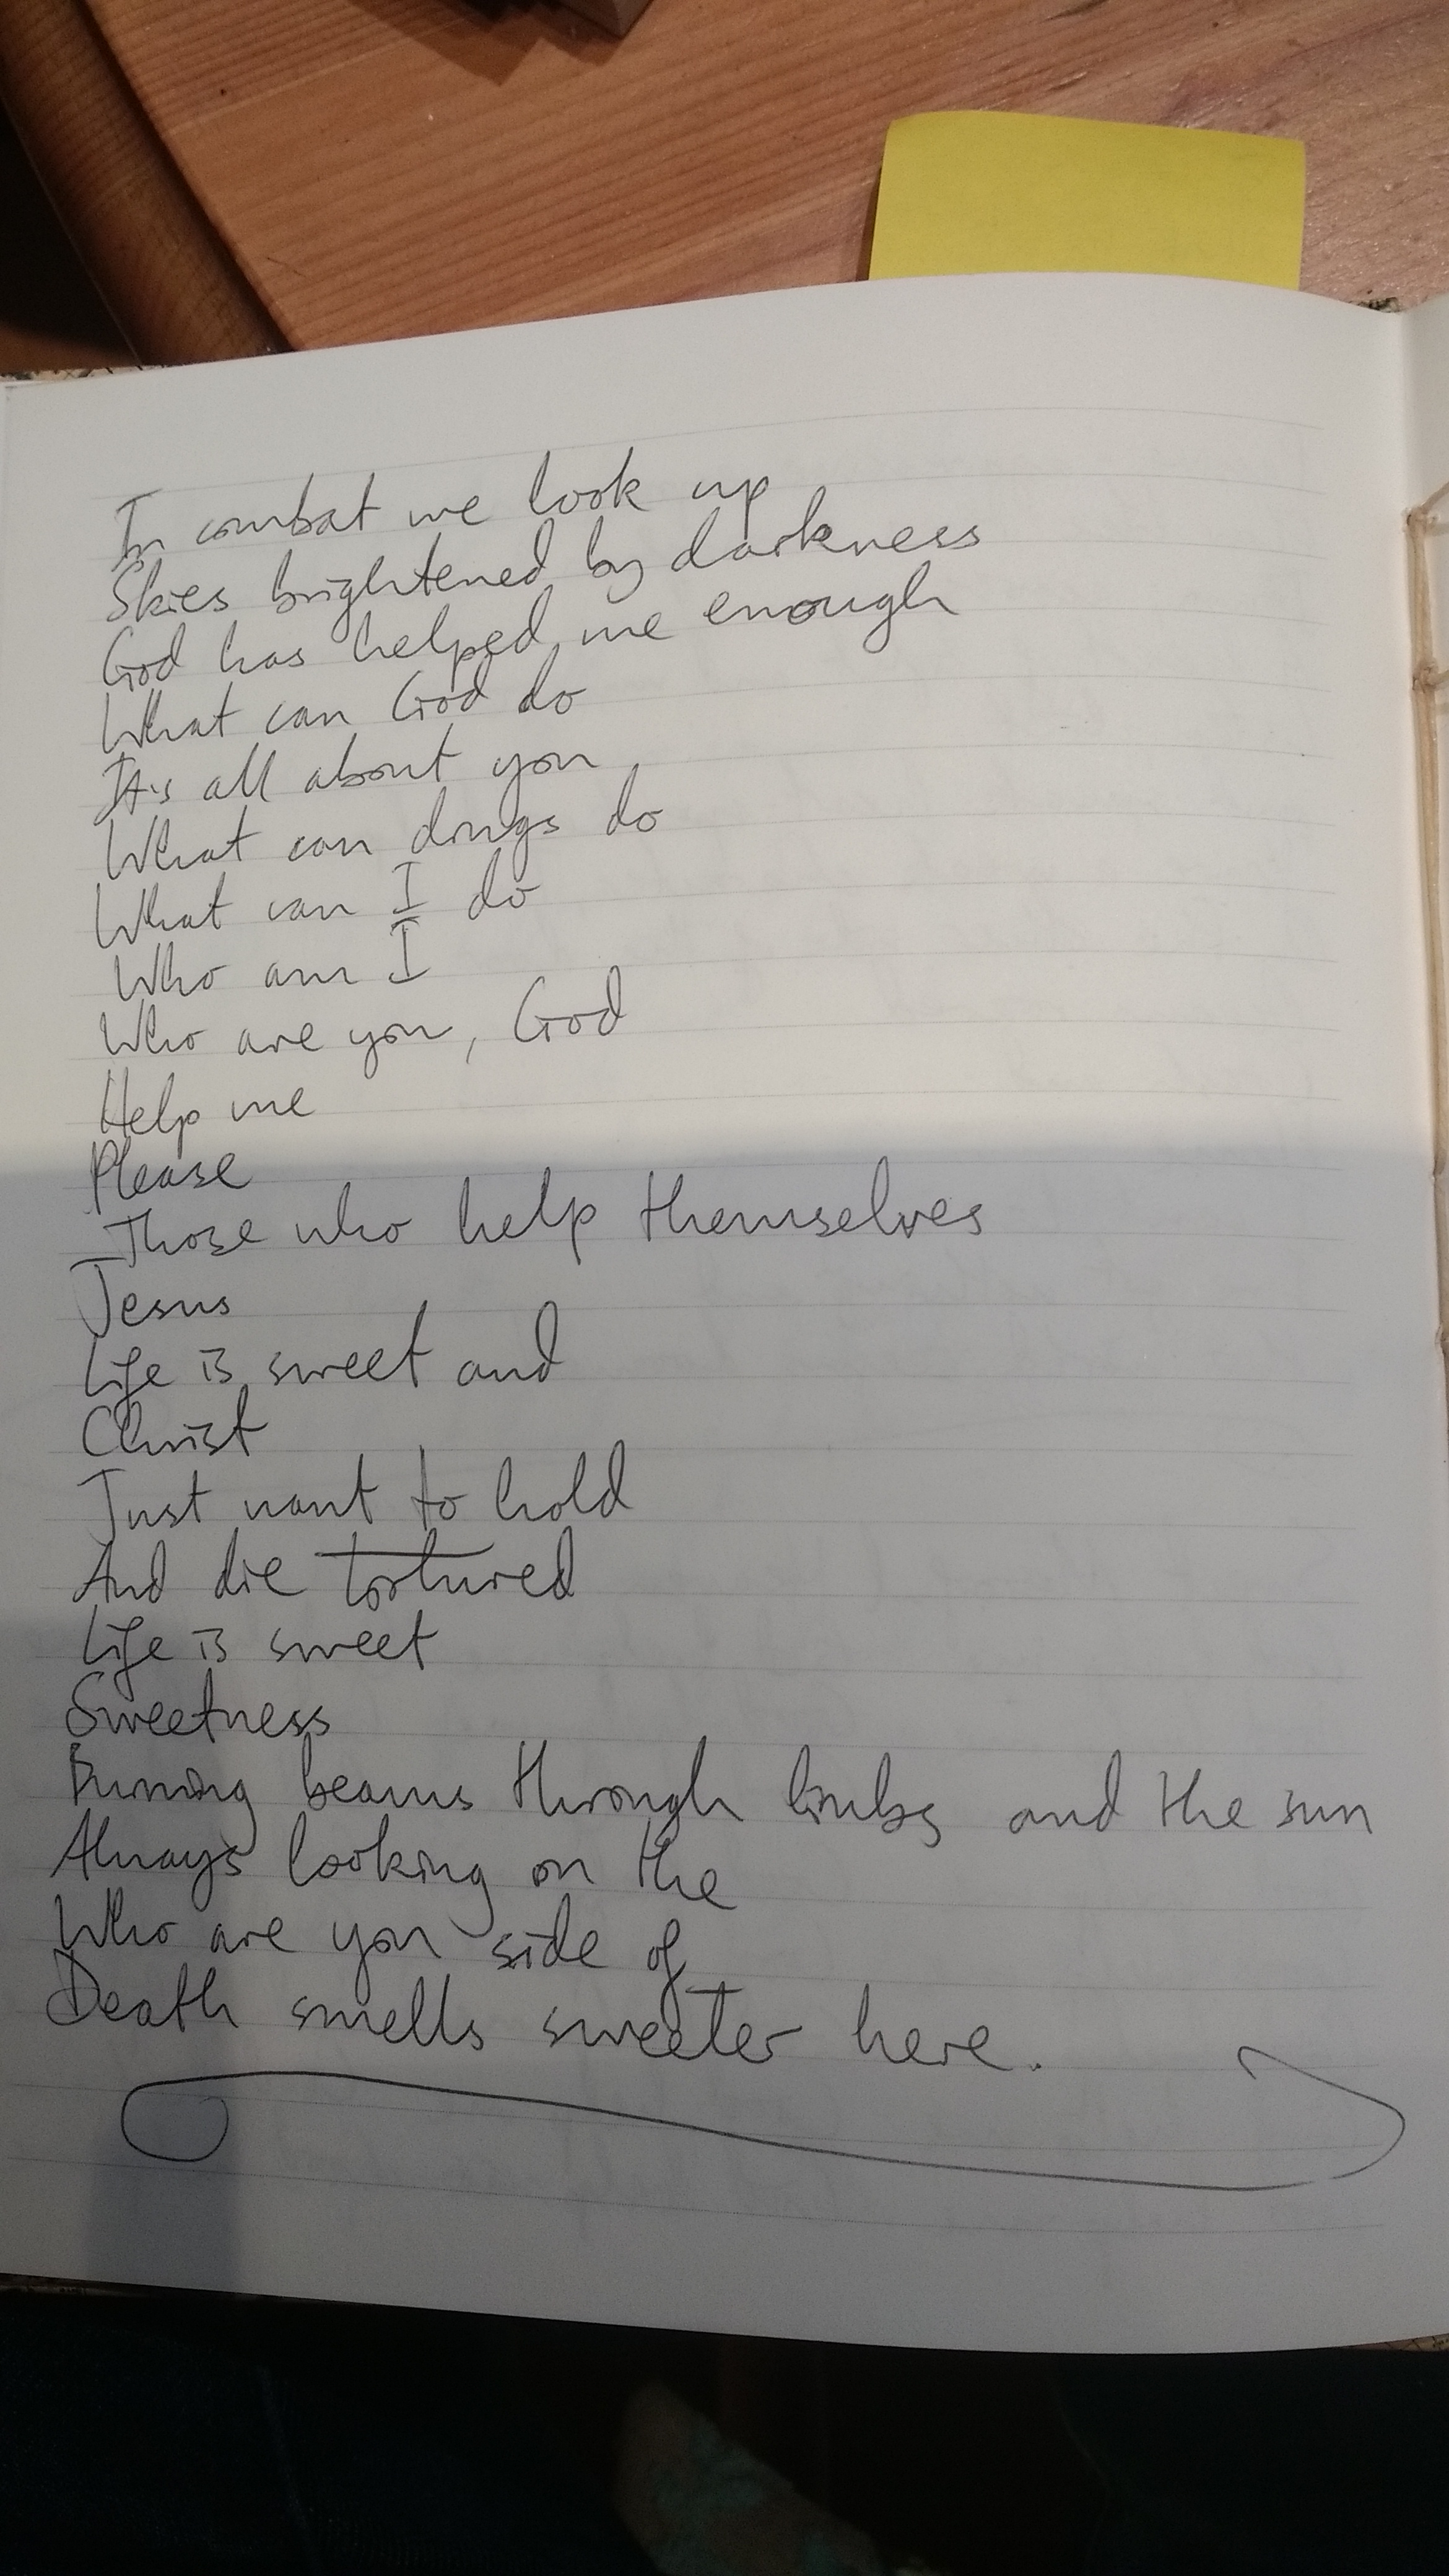 In combat we look up
Skies brightened by darkness
God has helped me enough
What can God do
It's all about you
What can drugs do
What can I do
Who am I
Who are you, God
Help me
Please
Those who help themselves
Jesus
Life is sweet and
Christ
Just want to hold
And die tortured
Life is sweet
Sweetness
beams through limbs and the sun
Always looking on the
Who are you side of
Death smells sweeter here.